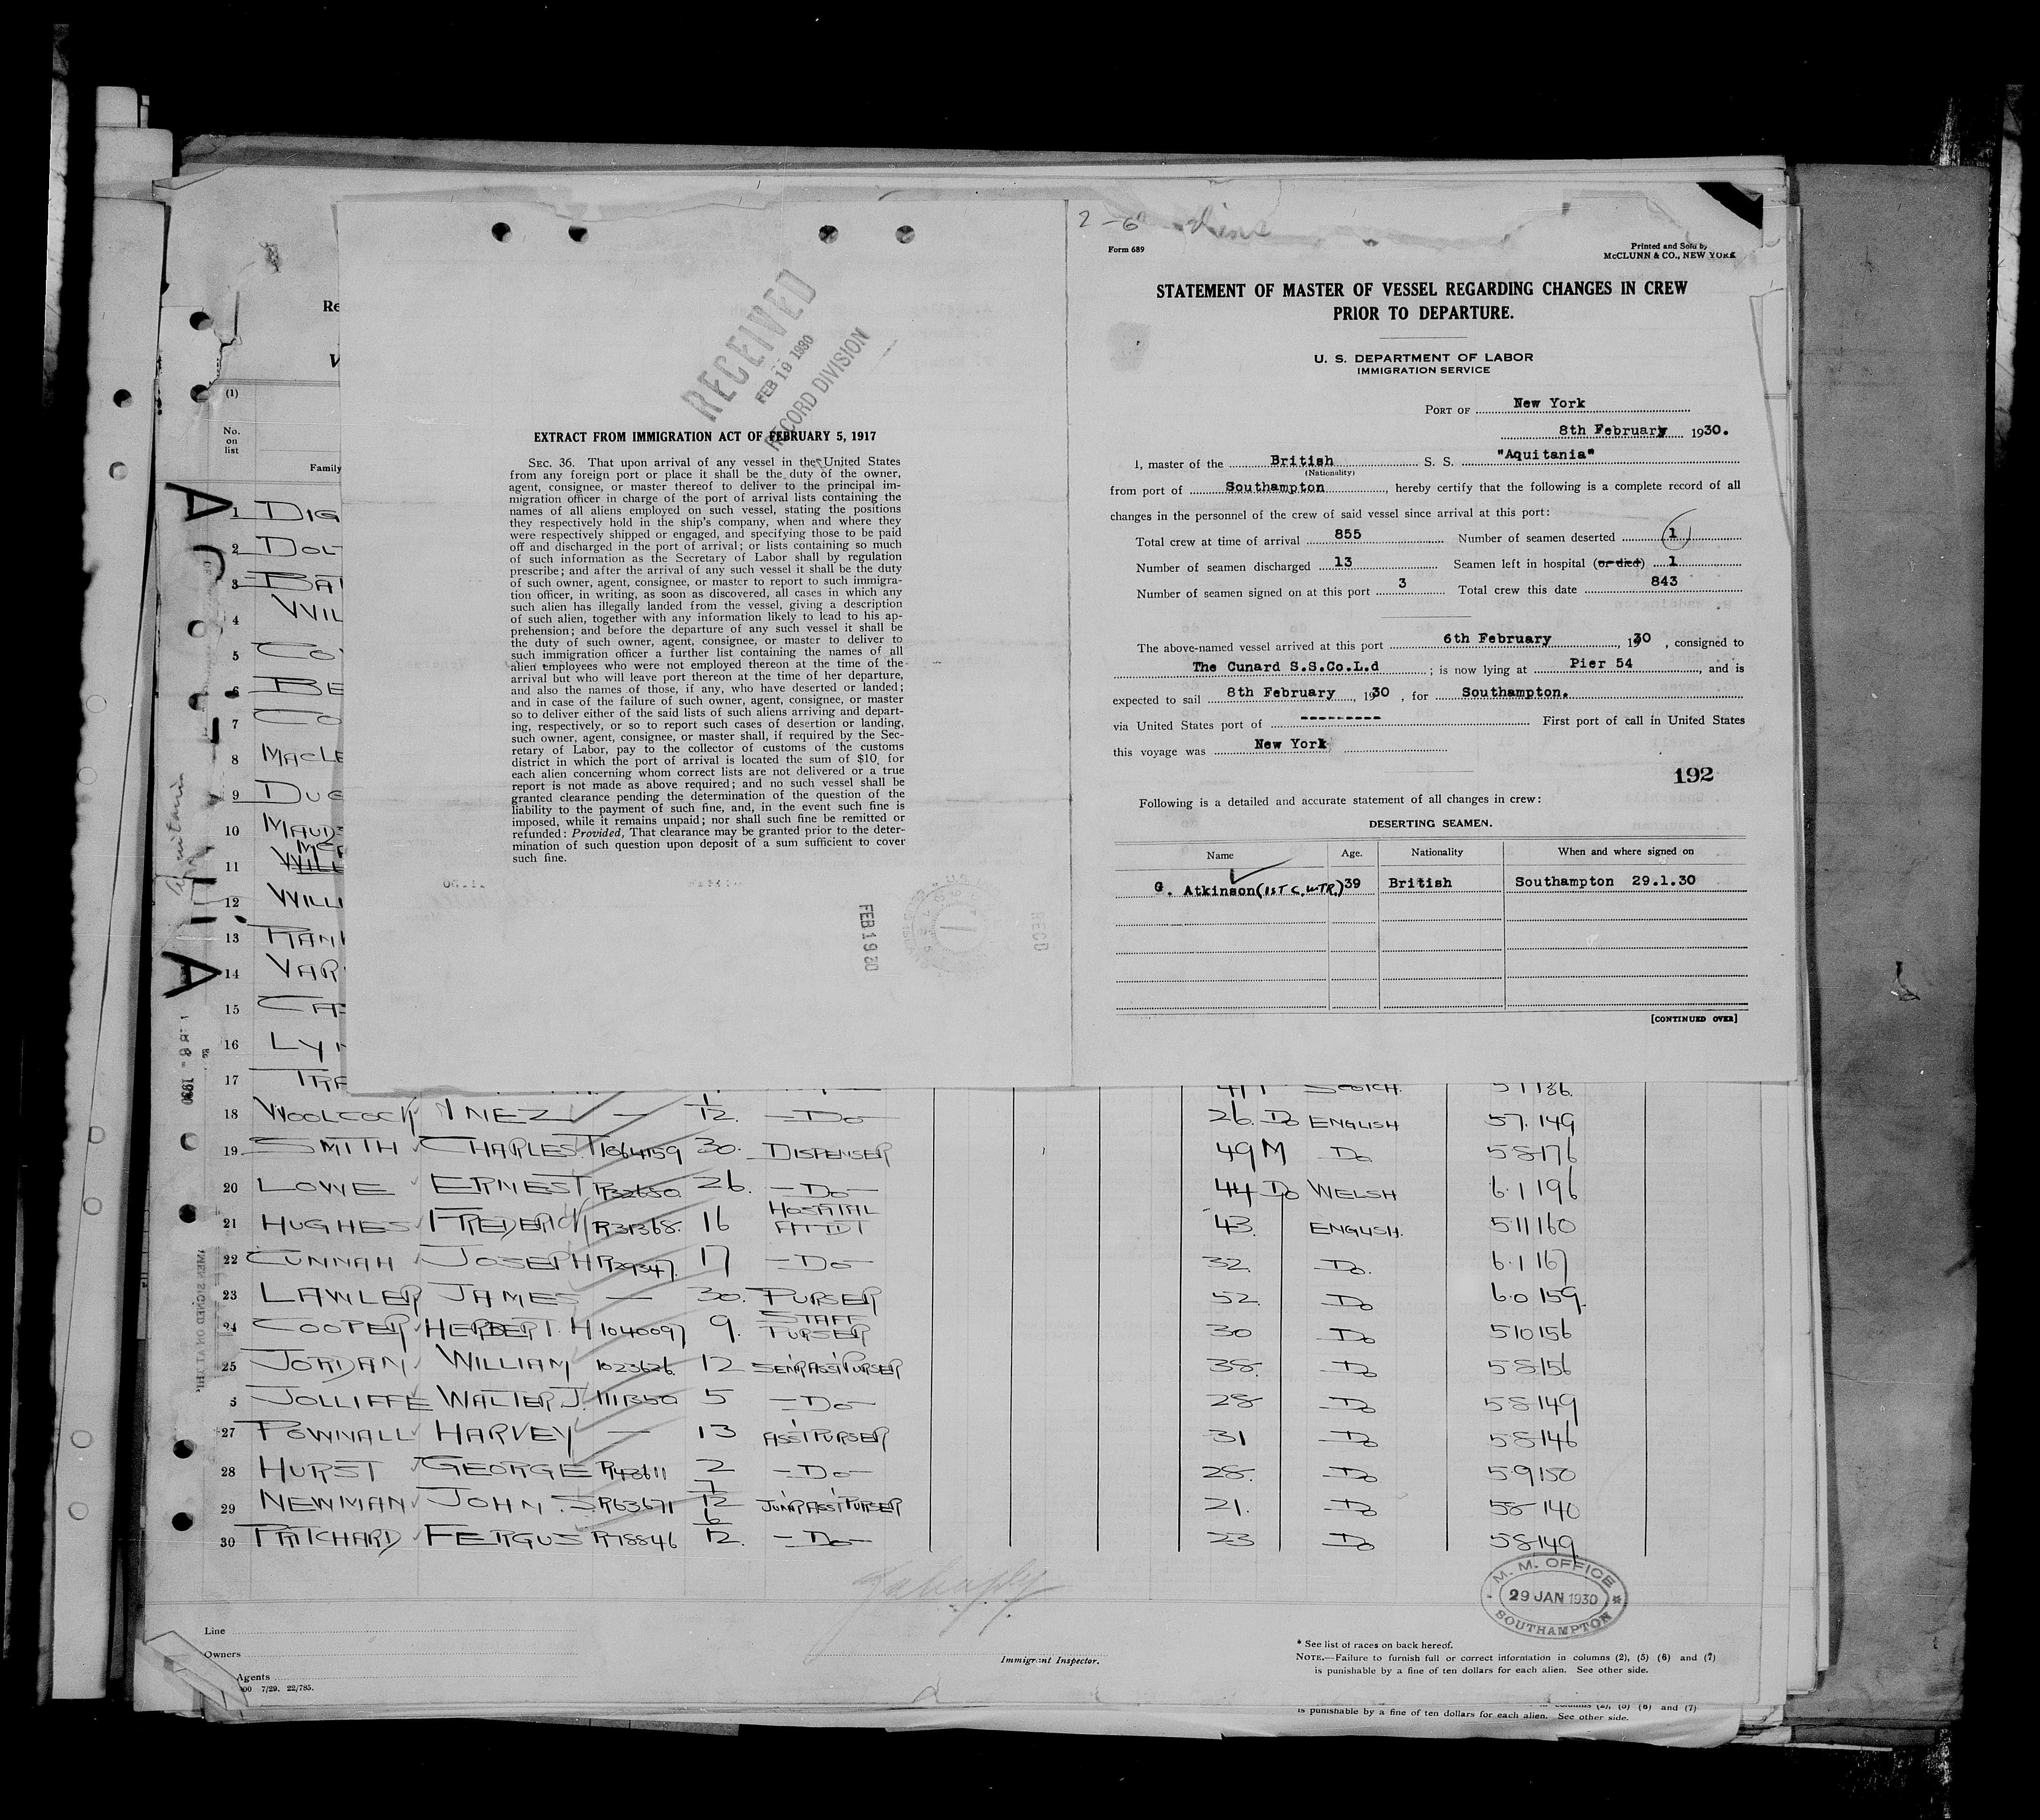 2-6
Form 689
Printed and Sold by
McCLUNN & CO., NEW YORK
STATEMENT OF MASTER OF VESSEL REGARDING CHANGES IN CREW
PRIOR TO DEPARTURE.
U. S. DEPARTMENT OF LABOR
IMMIGRATION SERVICE
PORT OF New York
8th February 1930.
I, master of the British S. S. "Aquitania"
(Nationality)
from port of Southampton, hereby certify that the following is a complete record of all
changes in the personnel of the crew of said vessel since arrival at this port:
Total crew at time of arrival 855 Number of seamen deserted 1
Number of seamen discharged 13 Seamen left in hospital (or died) 1
Number of seamen signed on at this port 3 Total crew this date 843
The above-named vessel arrived at this port 6th February, 1930, consigned to
The Cunard S.S.Co.L.d; is now lying at Pier 54, and is
expected to sail 8th February, 1930, for Southampton.
via United States port of --------- First port of call in United States
this voyage was New York
192
Following is a detailed and accurate statement of all changes in crew:
DESERTING SEAMEN.
Name Age. Nationality When and where signed on
G. Atkinson (1ST C. WTR.) 39 British Southampton 29.1.30
[CONTINUED OVER]
RECEIVED
FEB 19 1930
RECORD DIVISION
EXTRACT FROM IMMIGRATION ACT OF FEBRUARY 5, 1917
SEC. 36. That upon arrival of any vessel in the United States
from any foreign port or place it shall be the duty of the owner,
agent, consignee, or master thereof to deliver to the principal im-
migration officer in charge of the port of arrival lists containing the
names of all aliens employed on such vessel, stating the positions
they respectively hold in the ship's company, when and where they
were respectively shipped or engaged, and specifying those to be paid
off and discharged in the port of arrival; or lists containing so much
of such information as the Secretary of Labor shall by regulation
prescribe; and after the arrival of any such vessel it shall be the duty
of such owner, agent, consignee, or master to report to such immigra-
tion officer, in writing, as soon as discovered, all cases in which any
such alien has illegally landed from the vessel, giving a description
of such alien, together with any information likely to lead to his ap-
prehension; and before the departure of any such vessel it shall be
the duty of such owner, agent, consignee, or master to deliver to
such immigration officer a further list containing the names of all
alien employees who were not employed thereon at the time of the
arrival but who will leave port thereon at the time of her departure,
and also the names of those, if any, who have deserted or landed;
and in case of the failure of such owner, agent, consignee, or master
so to deliver either of the said lists of such aliens arriving and depart-
ing, respectively, or so to report such cases of desertion or landing,
such owner, agent, consignee, or master shall, if required by the Sec-
retary of Labor, pay to the collector of customs of the customs
district in which the port of arrival is located the sum of $10 for
each alien concerning whom correct lists are not delivered or a true
report is not made as above required; and no such vessel shall be
granted clearance pending the determination of the question of the
liability to the payment of such fine, and, in the event such fine is
imposed, while it remains unpaid; nor shall such fine be remitted or
refunded: Provided, That clearance may be granted prior to the deter-
mination of such question upon deposit of a sum sufficient to cover
such fine.
FEB 19 30
RECD
Re
V
(1)
No.
on
list
Family
1 DIG
2 DOL
3 BAI
4 WIL
5 CO
6 BE
7 CO
8 MACLE
9 DUG
10 MAUD
11 WILL
12 WILLI
13 RAN
14 VAR
15 CA
16 LY
17 TRA SCOTCH. 5 7 136.
18 WOOLCOCK INEZ — 1/12. —DO— 26. DO ENGLISH 5 7. 149
19 SMITH CHARLES T 1064159 30. DISPENSER 49 M DO 5 8 176
20 LOWE ERNEST R32650 26. —DO— 44 DO WELSH 6. 1 196
21 HUGHES FREDERICK R31368. 16 HOSPITAL ATTDT 43. ENGLISH. 5 11 160
22 CUNNAH JOSEPH R29347. 17 —DO— 32. DO. 6. 1 167
23 LAWLER JAMES — 30. PURSER 52. DO 6.0 159.
24 COOPER HERBERT. H 1040097 9. STAFF PURSER 30 DO 5 10 156
25 JORDAN WILLIAM 1023626. 12 SENR ASST PURSER 38. DO 5 8 156
JOLLIFFE WALTER J. 1111350 5 —DO— 28 DO 5 8 149
27 POWNALL HARVEY — 13 ASST PURSER 31 DO 5 8 146
28 HURST GEORGE R43611 2 —DO— 28. DO 5.9 150
29 NEWMAN JOHN. S R63671 7/12 JUNR ASST PURSER 21. DO 5 8 140
30 PRITCHARD FERGUS R78846 6/12. —DO— 23 DO 5 8 149
M. M. OFFICE
29 JAN 1930
SOUTHAMPTON
Line
Owners
Agents
Immigrant Inspector.
00 7/29. 22/785.
* See list of races on back hereof.
NOTE.—Failure to furnish full or correct information in columns (2), (5) (6) and (7)
is punishable by a fine of ten dollars for each alien. See other side.
columns (2), (5) (6) and (7)
is punishable by a fine of ten dollars for each alien. See other side.